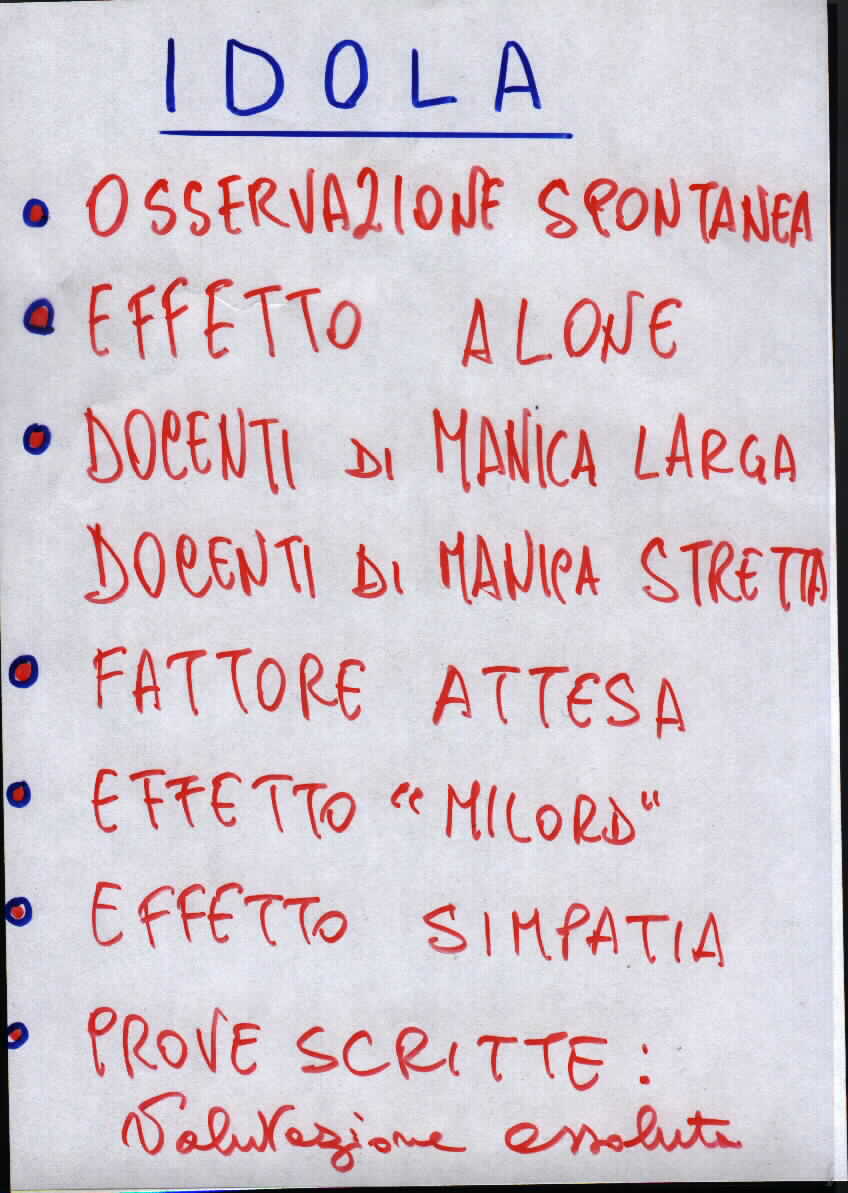 IDOLA
• OSSERVAZIONE SPONTANEA
• EFFETTO ALONE
• DOCENTI DI MANICA LARGA
DOCENTI DI MANICA STRETTA
• FATTORE ATTESA
• EFFETTO “MILORD”
• EFFETTO SIMPATIA
• PROVE SCRITTE:
Valutazione assoluta